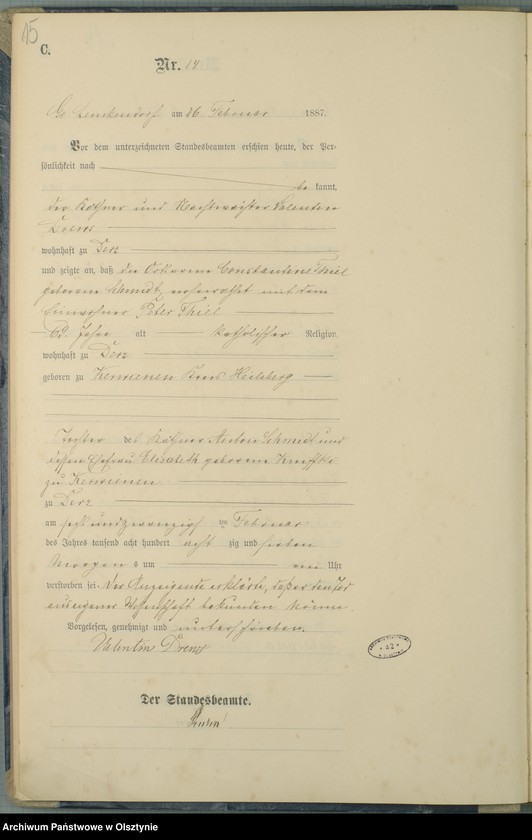 15
C.
Nr. 14
Gr. Lemkendorf am 26 Februar 1887.
Vor dem unterzeichneten Standesbeamten erschien heute, der Per-
sönlichkeit nach
be kannt,
der Käthner und Nachtwächter Valentin
Drews
wohnhaft zu Derz
und zeigte an, daß die Ortsarme Constantine Thiel
geborene Schmidt, verheirathet mit dem
Einwohner Peter Thiel
69 Jahre alt katholischer Religion
wohnhaft zu Derz
geboren zu Kreis Heilsberg
Tochter des Käthner Anton Schmidt und
dessen Ehefrau Elisabeth geborene
zu
zu Derz
am sechsundzwanzigsten Februar
des Jahres tausend acht hundert acht zig und sieben
Morgens um ein Uhr
verstorben sei. Der Anzeigende erklärte, daß er den Tod
aus eigener Wissenschaft bekunden könne.
Vorgelesen, genehmigt und unterschrieben.
Valentin Drews
Der Standesbeamte.
42
Archiwum Państwowe w Olsztynie